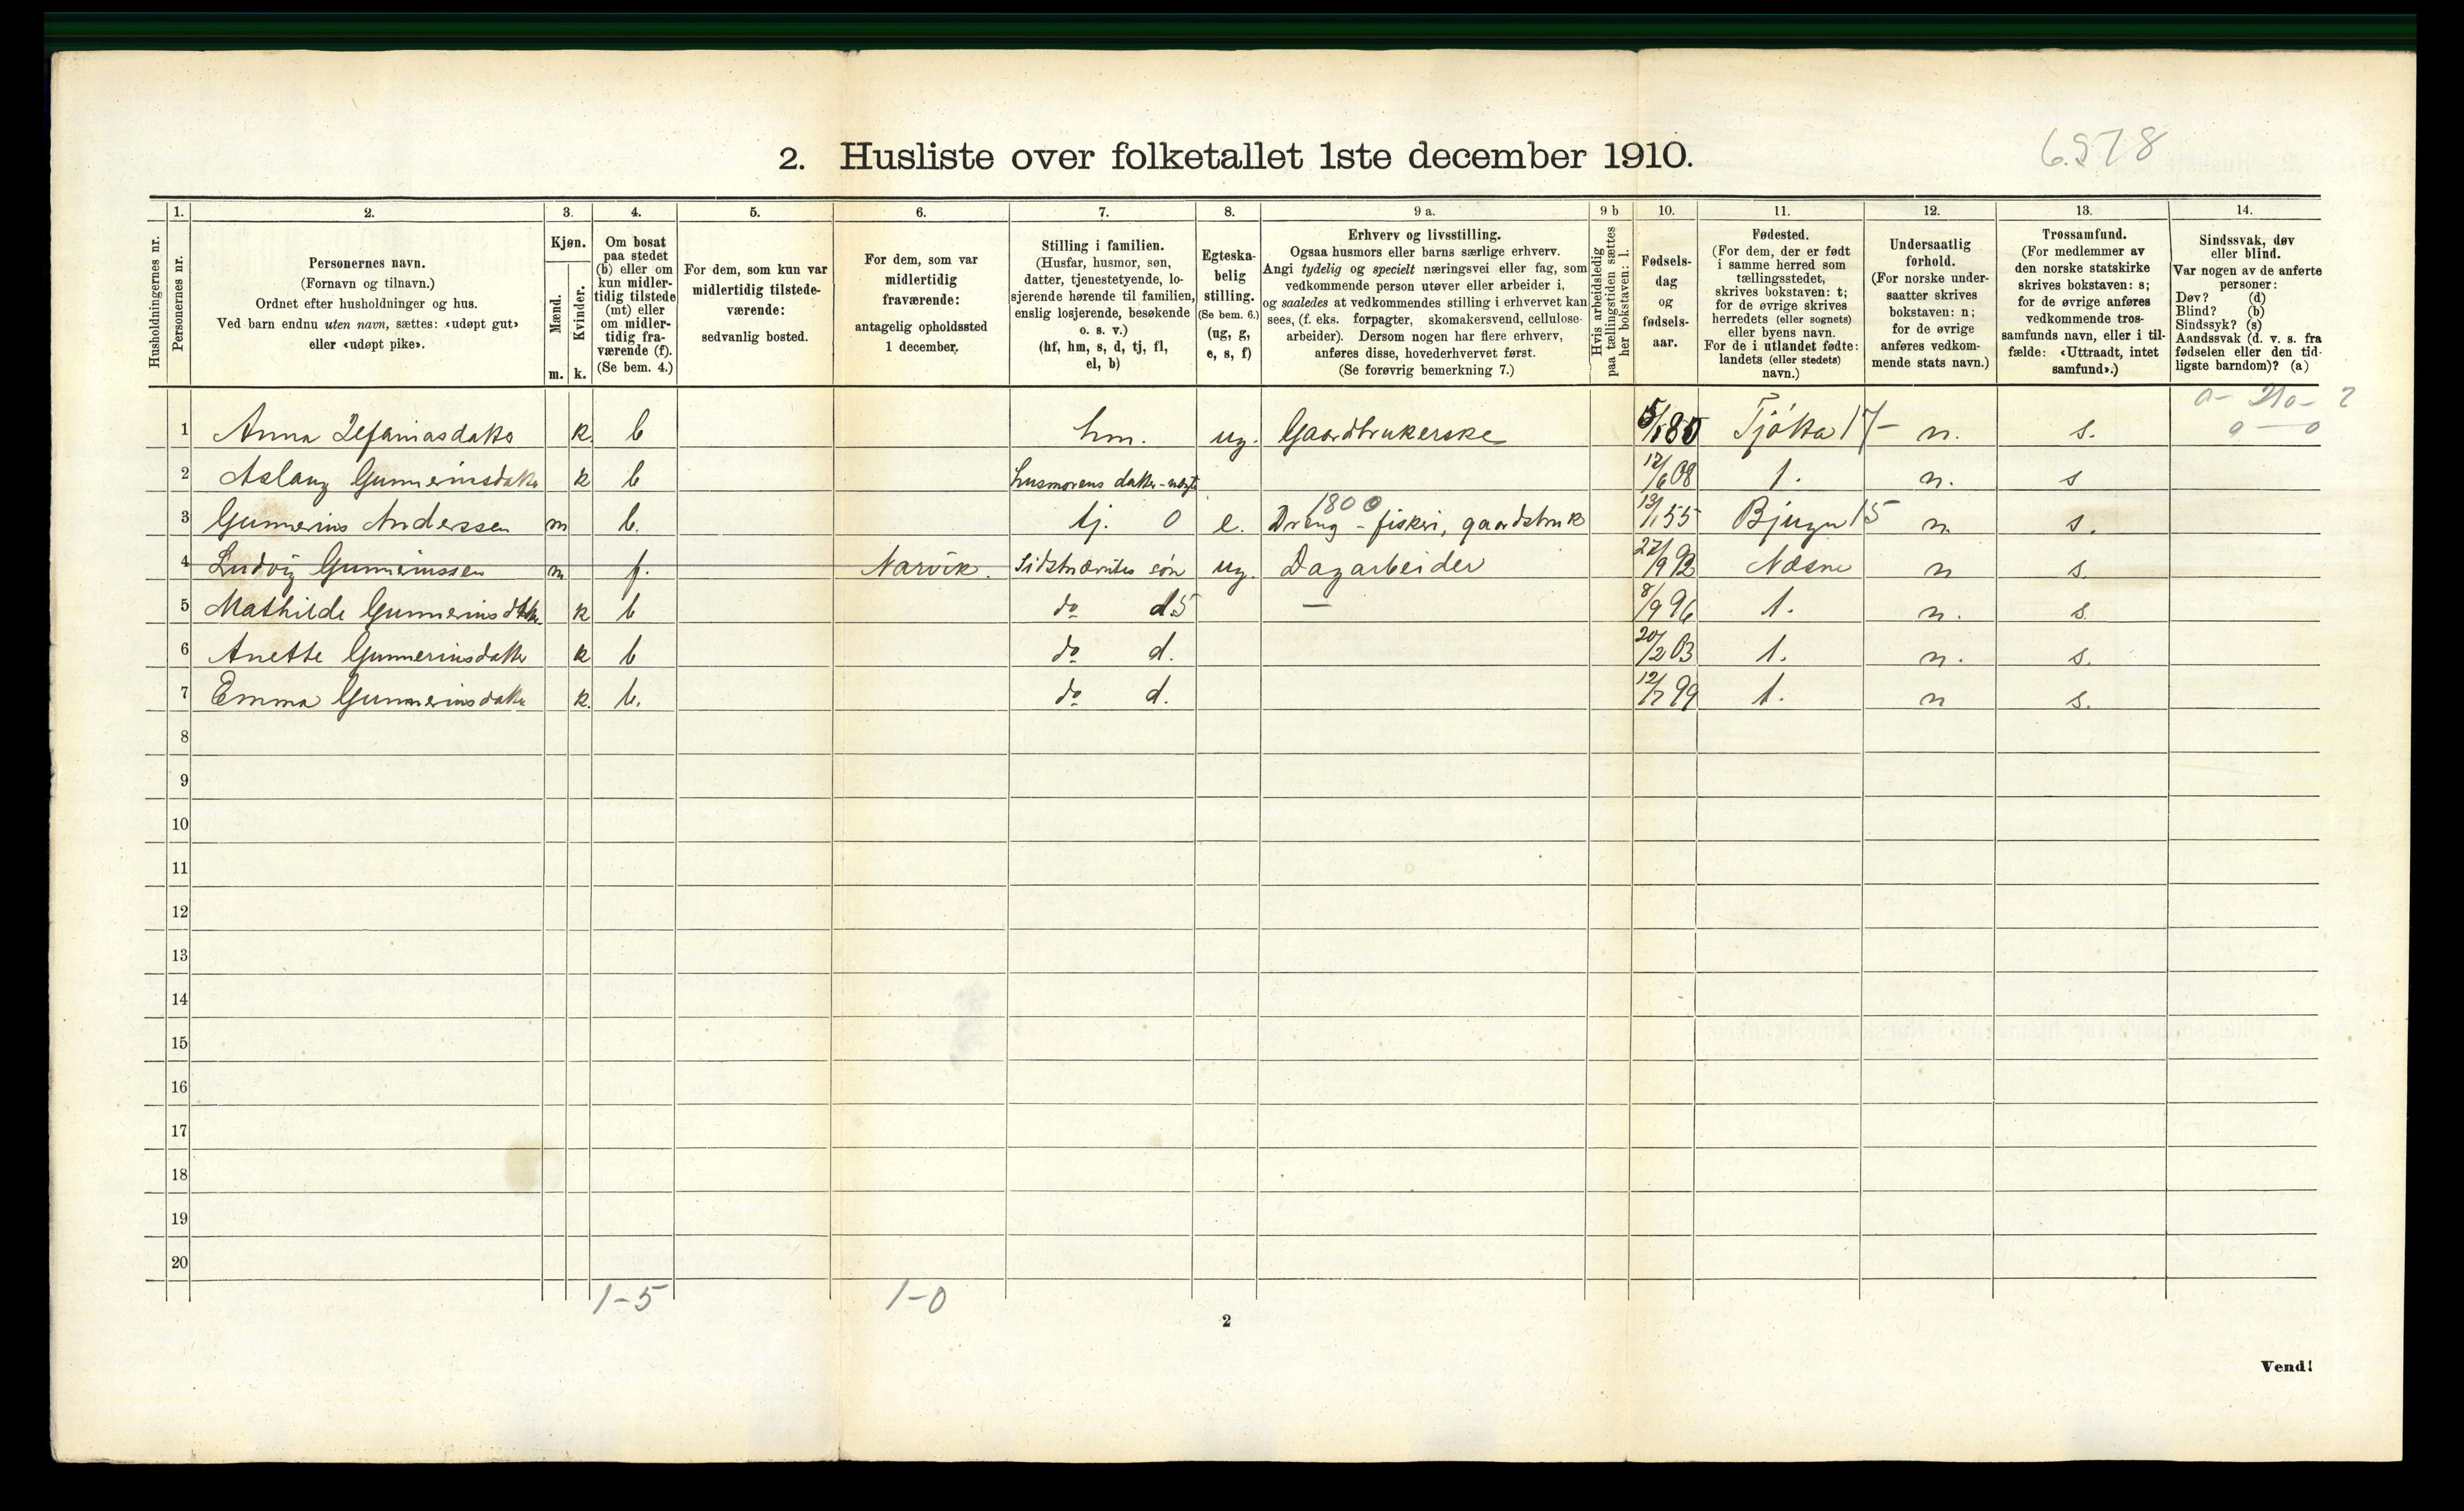 6.978
2. Husliste over folketallet 1ste december 1910.
Husholdningernes nr.
1.
Personernes nr.
2.
Personernes navn.
(Fornavn og tilnavn.)
Ordnet efter husholdninger og hus.
Ved barn endnu uten navn, sættes: «udøpt gut»
eller «udøpt pike».
3.
Kjøn.
Mænd.
m.
Kvinder.
k.
4.
Om bosat
paa stedet
(b) eller om
kun midler-
tidig tilstede
(mt) eller
om midler-
tidig fra-
værende (f).
(Se bem. 4.)
5.
For dem, som kun var
midlertidig tilstede-
værende:
sedvanlig bosted.
6.
For dem, som var
midlertidig
fraværende:
antagelig opholdssted
1 december.
7.
Stilling i familien.
(Husfar, husmor, søn,
datter, tjenestetyende, lo-
sjerende hørende til familien,
enslig losjerende, besøkende
o. s. v.)
(hf, hm, s, d, tj, fl,
el, b)
8.
Egteska-
belig
stilling.
(Se bem. 6.)
(ug, g,
e, s, f)
9 a.
Erhverv og livsstilling.
Ogsaa husmors eller barns særlige erhverv.
Angi tydelig og specielt næringsvei eller fag, som
vedkommende person utøver eller arbeider i,
og saaledes at vedkommendes stilling i erhvervet kan
sees, (f. eks. forpagter, skomakersvend, cellulose-
arbeider). Dersom nogen har flere erhverv,
anføres disse, hovederhvervet først.
(Se forøvrig bemerkning 7.)
9 b
Hvis arbeidsledig
paa tællingstiden sættes
her bokstaven: l.
10.
Fødsels-
dag
og
fødsels-
aar.
11.
Fødested.
(For dem, der er født
i samme herred som
tællingsstedet,
skrives bokstaven: t;
for de øvrige skrives
herredets (eller sognets)
eller byens navn.
For de i utlandet fødte:
landets (eller stedets)
navn.)
12.
Undersaatlig
forhold.
(For norske under-
saatter skrives
bokstaven: n;
for de øvrige
anføres vedkom-
mende stats navn.)
13.
Trossamfund.
(For medlemmer av
den norske statskirke
skrives bokstaven: s;
for de øvrige anføres
vedkommende tros-
samfunds navn, eller i til-
fælde: «Uttraadt, intet
samfund».)
14.
Sindssvak, døv
eller blind.
Var nogen av de anførte
personer:
Døv? (d)
Blind? (b)
Sindssyk? (s)
Aandssvak (d. v. s. fra
fødselen eller den tid-
ligste barndom)? (a)
1 Anna Zefaniasdatter k. b hm. ug. Gaardbrukerske 80 Tjøtta 17- n. s. 0 - 0
2 Aslaug Gunnerinsdatter k b husmorens datter 12/6 08 t. n. s
1800
3 Gunnerius Anderssen m b. tj. 0 e. Dreng - fiskeri, gaardsbruk 13/1 55 Bjugn 15 n s.
4 Ludvig Gunneriussen m f. Narvik. Sidstnævntes søn ug. Dagarbeider 27/9 92 Næsne n s.
5 Mathilde Gunneriusdatter k b do d 5 — 8/9 96 t. n. s.
6 Anette Gunneriusdatter k b do d. 20/2 03 t. n. s.
7 Emma Gunneriusdatter k. b. do d. 12/7 99 t. n s.
8
9
10
11
12
13
14
15
16
17
18
19
20
1-5 1-0
2
Vend!